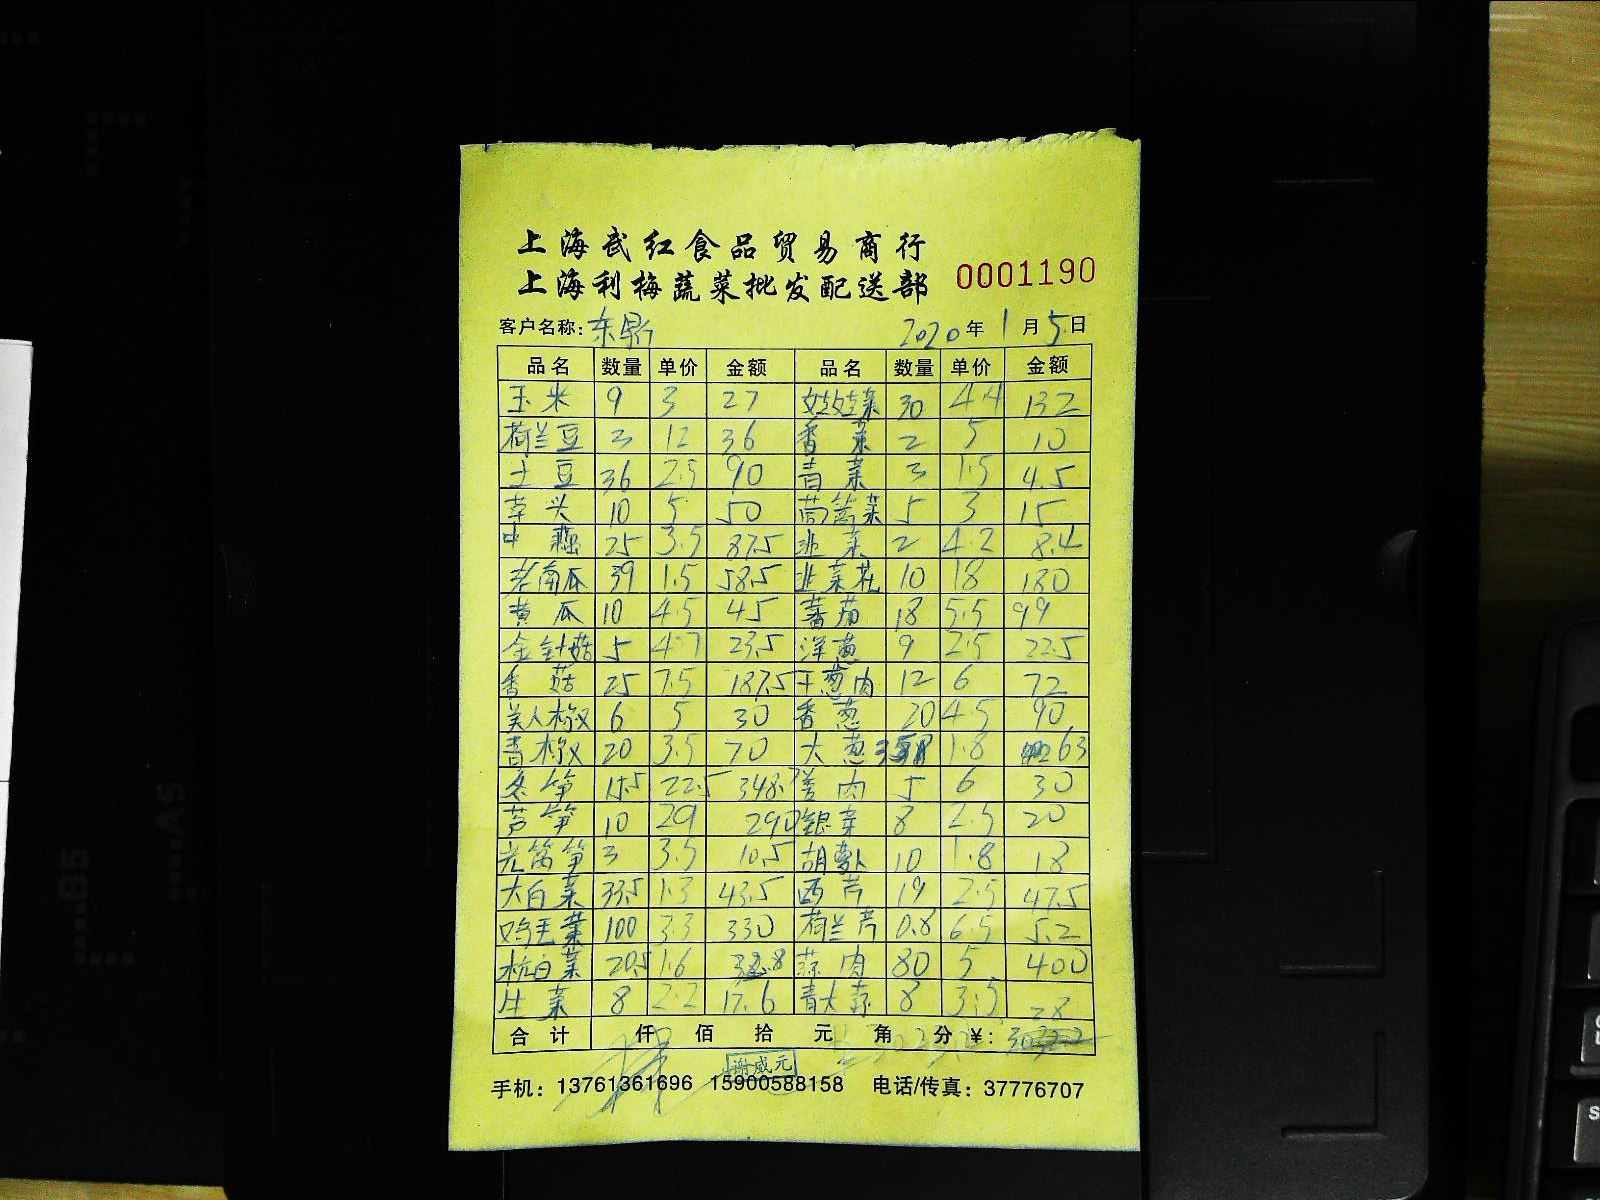 上海武红食品贸易商行
上海利梅蔬菜批发配送部 0001190
客户名称: 东鼎 2020年1月5日
品名 数量 单价 金额 品名 数量 单价 金额
玉米 9 3 27 娃娃菜 30 4.4 132
荷兰豆 3 12 36 香菜 2 5 10
土豆 36 2.5 90 青菜 3 1.5 4.5
草头 10 5 50 茼蒿菜 5 3 15
中 25 3.5 87.5 韭菜 2 4.2 8.4
老南瓜 39 1.5 58.5 韭菜花 10 18 180
黄瓜 10 4.5 45 蕃茄 18 5.5 99
金针菇 5 4.7 23.5 洋葱 9 2.5 22.5
香菇 25 7.5 187.5 干葱肉 12 6 72
美人椒 6 5 30 香葱 20 4.5 90
青椒 20 3.5 70 大葱 1.8 63
冬笋 15.5 22.5 348.7 肉 5 6 30
芦笋 10 29 290 银芽 8 2.5 20
光莴笋 3 3.5 10.5 胡萝卜 10 1.8 18
大白菜 33.5 1.3 43.5 西芹 19 2.5 47.5
鸡毛菜 100 3.3 330 荷兰芹 0.8 6.5 5.2
杭白菜 20.5 1.6 32.8 蒜肉 80 5 400
生菜 8 2.2 17.6 青大蒜 8 3.5 28
合计 仟 佰 拾 元 角 分 ¥:
谢威元
手机: 13761361696 15900588158 电话/传真: 37776707